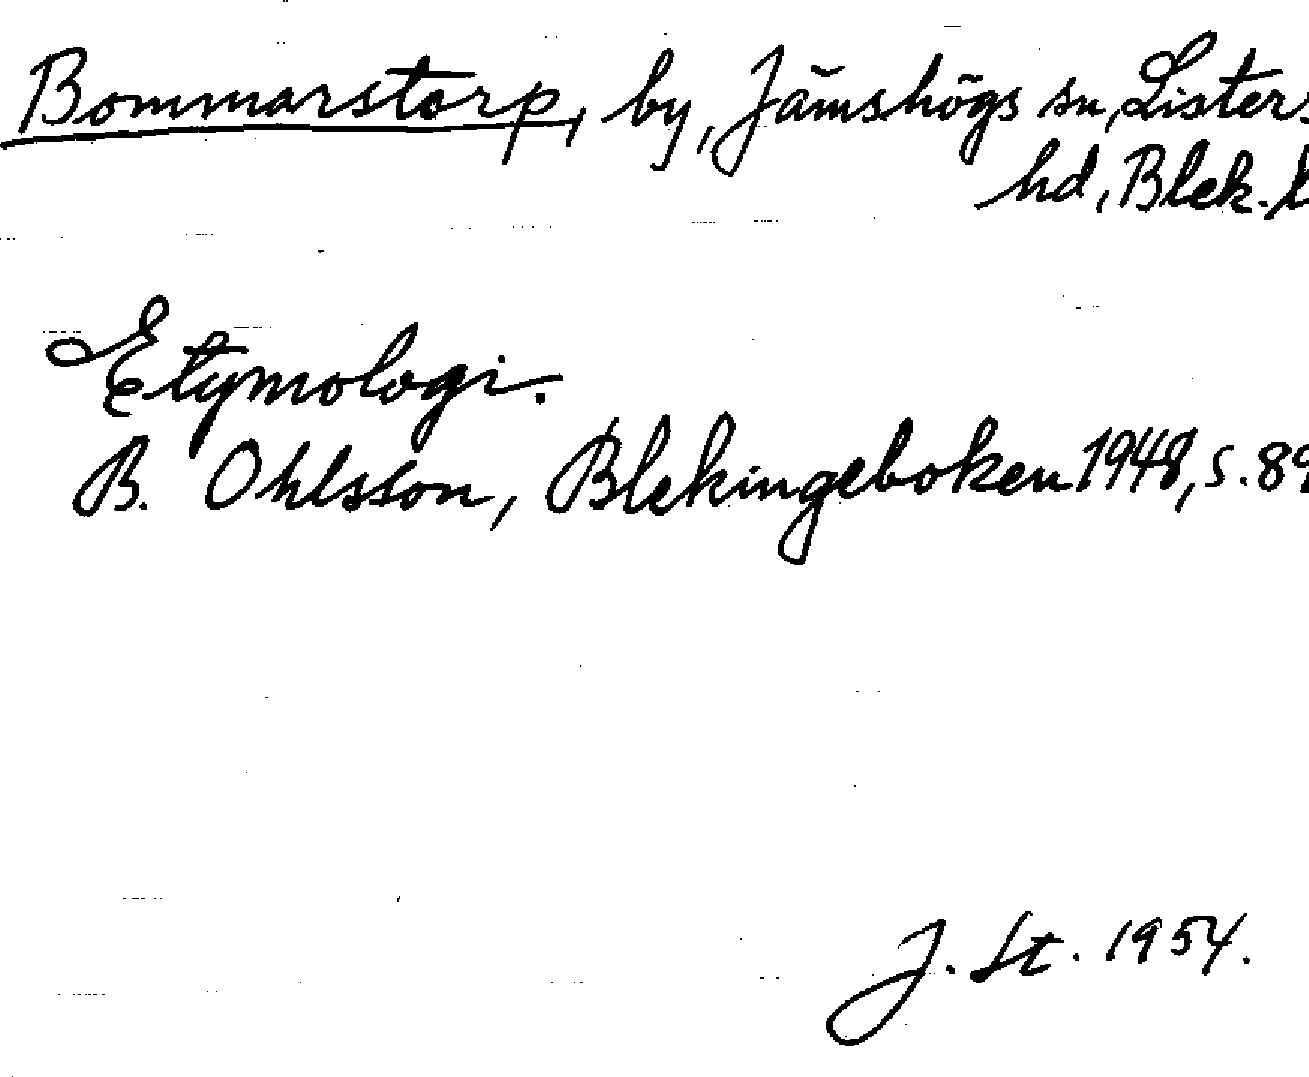 Bommarstorp, by, Jämshögs sn, Listers
hd, Blek. l
Etymologi.
B. Ohlsson, Blekingeboken 1948, s. 89
J. St. 1954.